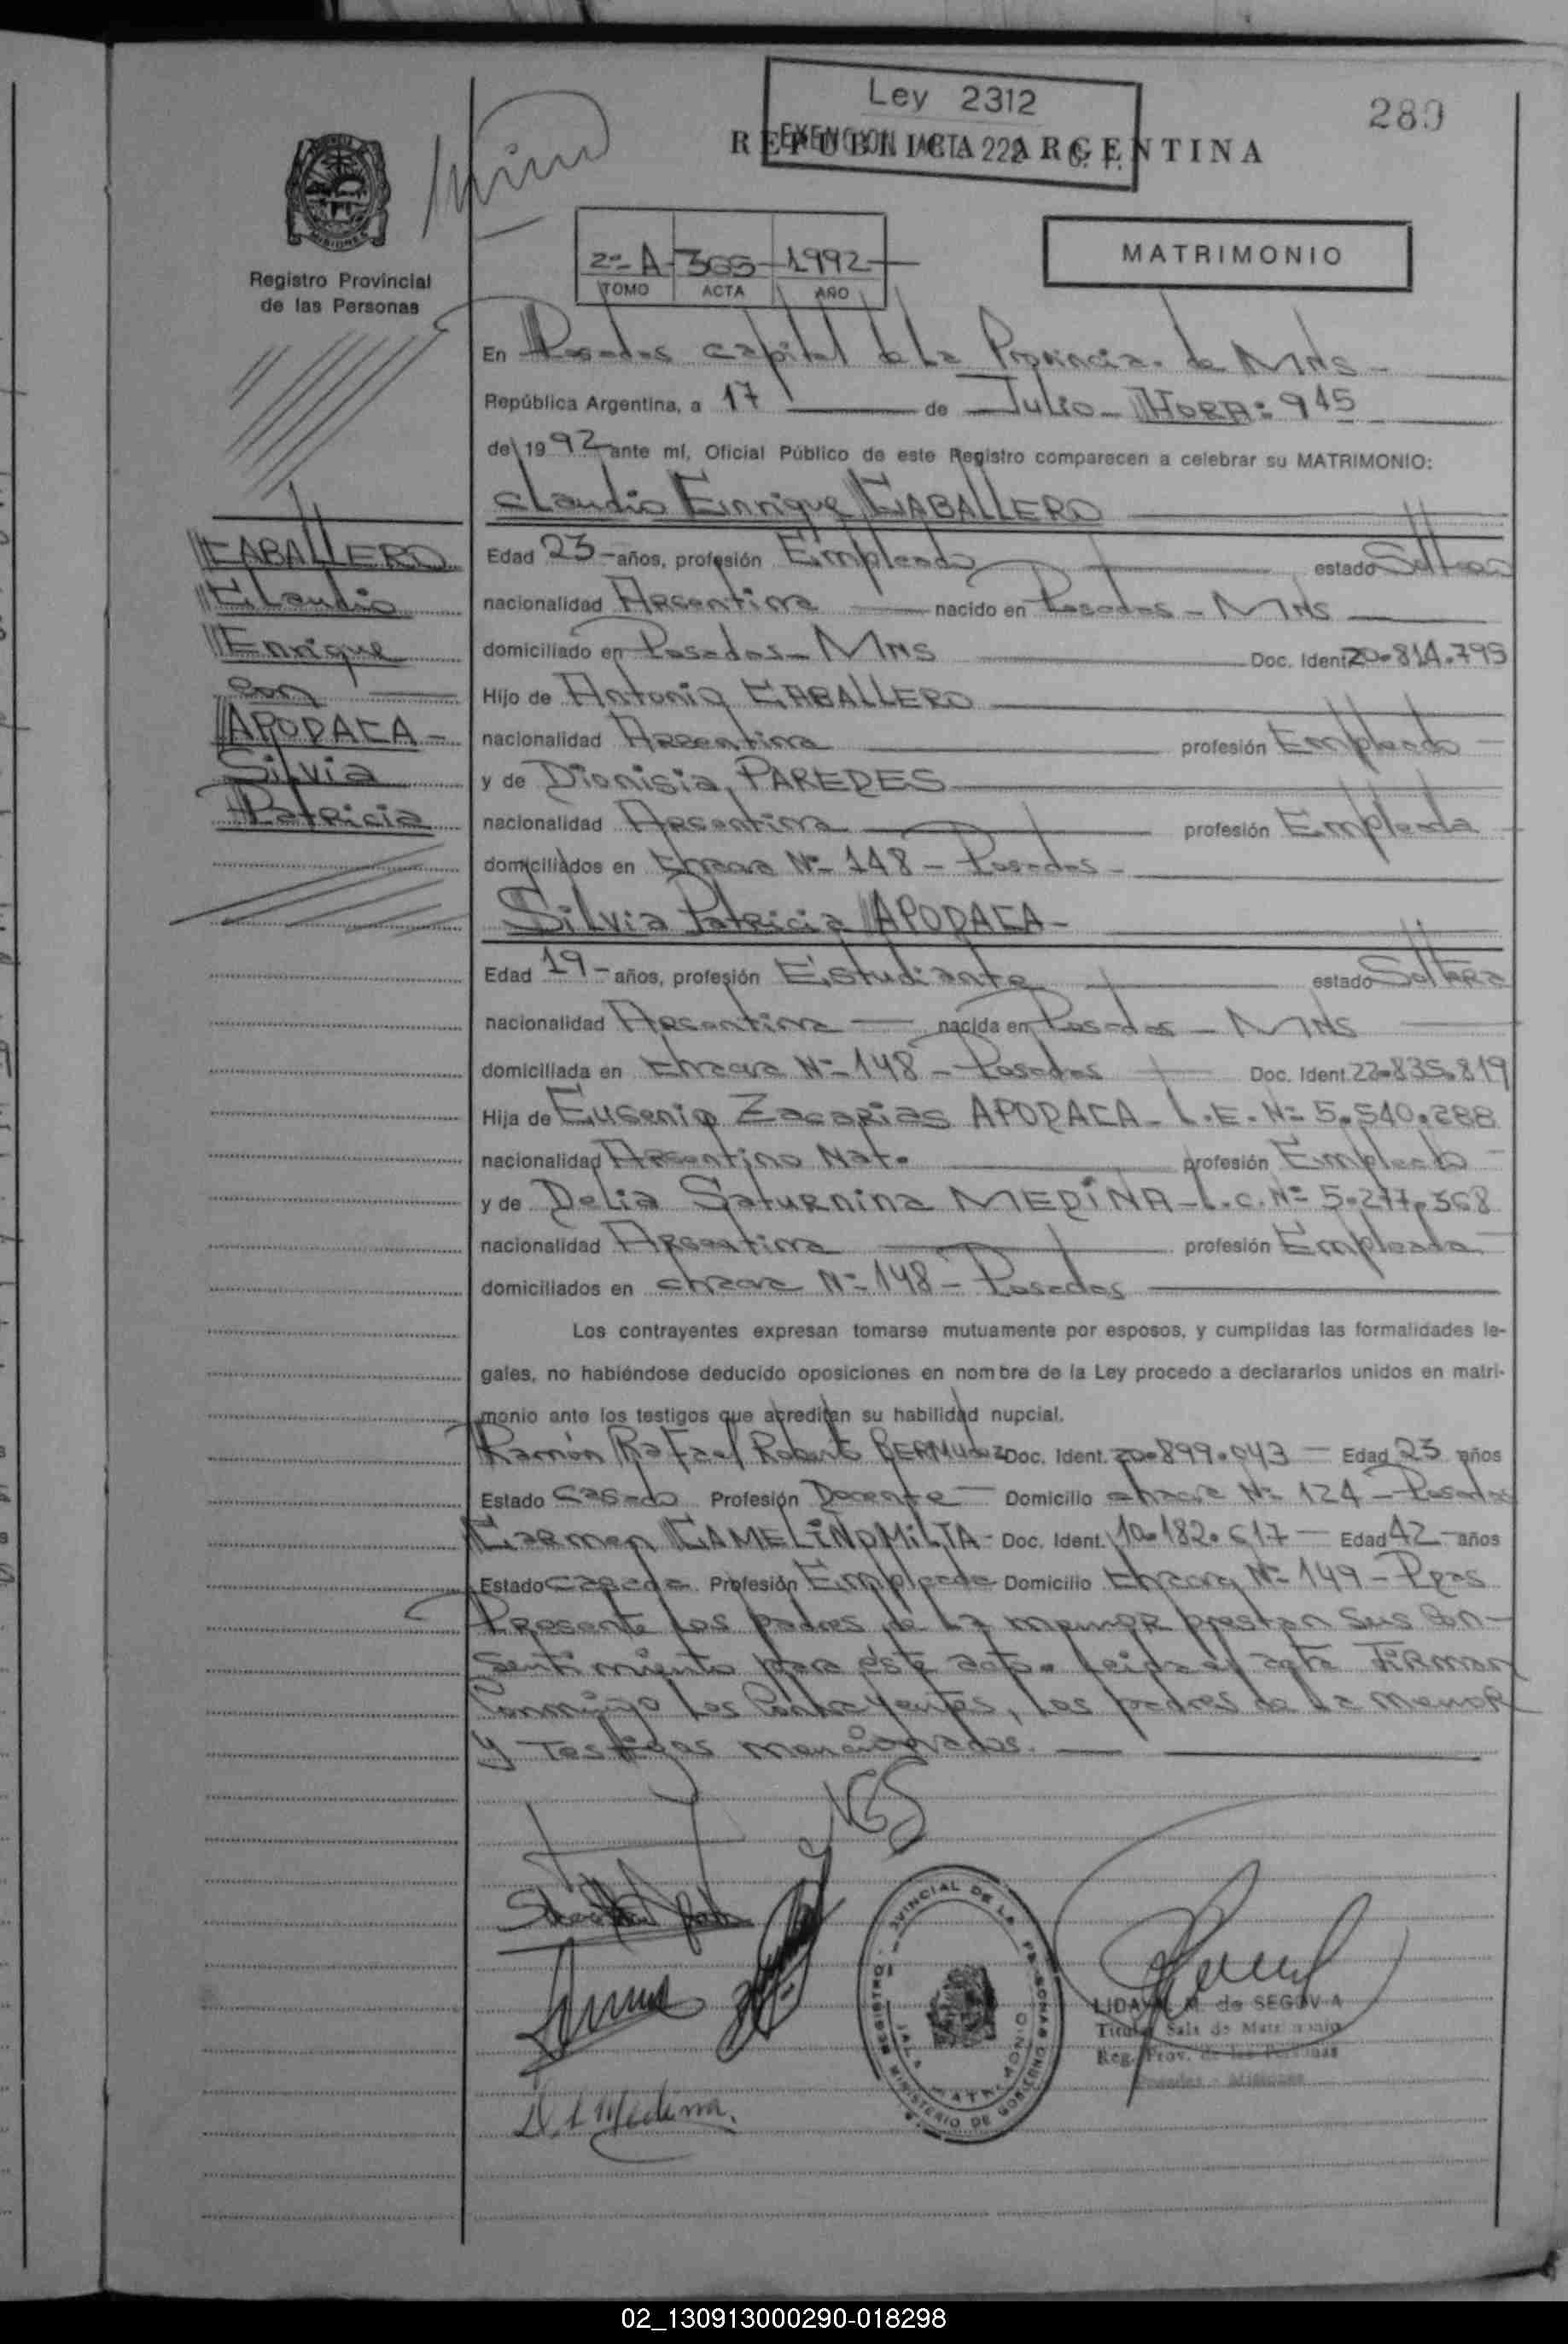 Ley 2312
EXENCION ACTA 222 C. F.
280
REPUBLICA ARGENTINA
MISIONES
Registro Provincial
de las Personas
2º-A-365-1992
TOMO ACTA AÑO
MATRIMONIO
En Posadas capital de la Provincia de Mns-
República Argentina, a 17 de Julio- HORA: 9 45
de 1992 ante mí, Oficial Público de este Registro comparecen a celebrar su MATRIMONIO:
Claudio Enrique CABALLERO
CABALLERO
Claudio
Enrique
con
APODACA-
Silvia
Patricia
Edad 23- años, profesión Empleado estado Soltero
nacionalidad Argentina nacido en Posadas - Mns
domiciliado en Posadas- Mns Doc. Ident. 20.814.795
Hijo de Antonio CABALLERO
nacionalidad Argentina profesión Empleado-
y de Dionisia PAREDES
nacionalidad Argentina profesión Empleada
domiciliados en Chacra Nº 148 - Posadas-
Silvia Patricia APODACA-
Edad 19- años, profesión Estudiante estado Soltera
nacionalidad Argentina nacida en Posadas - Mns
domiciliada en Chacra Nº 148 - Posadas Doc. Ident. 22.835.819
Hija de Eugenio Zacarias APODACA- L.E. Nº 5.540.288
nacionalidad Argentino Nat. profesión Empleado-
y de Delia Saturnina MEDINA- L.C. Nº 5.277.368
nacionalidad Argentina profesión Empleada
domiciliados en chacra Nº 148 - Posadas
Los contrayentes expresan tomarse mutuamente por esposos, y cumplidas las formalidades le-
gales, no habiéndose deducido oposiciones en nombre de la Ley procedo a declararlos unidos en matri-
monio ante los testigos que acreditan su habilidad nupcial.
Ramón Rafael Roberto BERMUDEZ Doc. Ident. 20.899.043 - Edad 23 años
Estado Casado Profesión Docente- Domicilio chacra Nº 124 - Posadas
Carmen Doc. Ident. 10.182.617 - Edad 42 años
Estado casada Profesión Empleada Domicilio Chacra Nº 149 - Pdas
Presente los padres de la menor prestan sus Con-
sentimiento para éste acto. Leida el acta Firman
Conmigo los Contrayentes, los padres de la menor
y Testigos mencionados.
REGISTRO PROVINCIAL DE LAS PERSONAS
SALA MATRIMONIO
MINISTERIO DE GOBIERNO
de SEGOVIA
Titular Sala de Matrimonio
Reg. Prov. de las Personas
Posadas - Misiones
Medina.
02_130913000290-018298